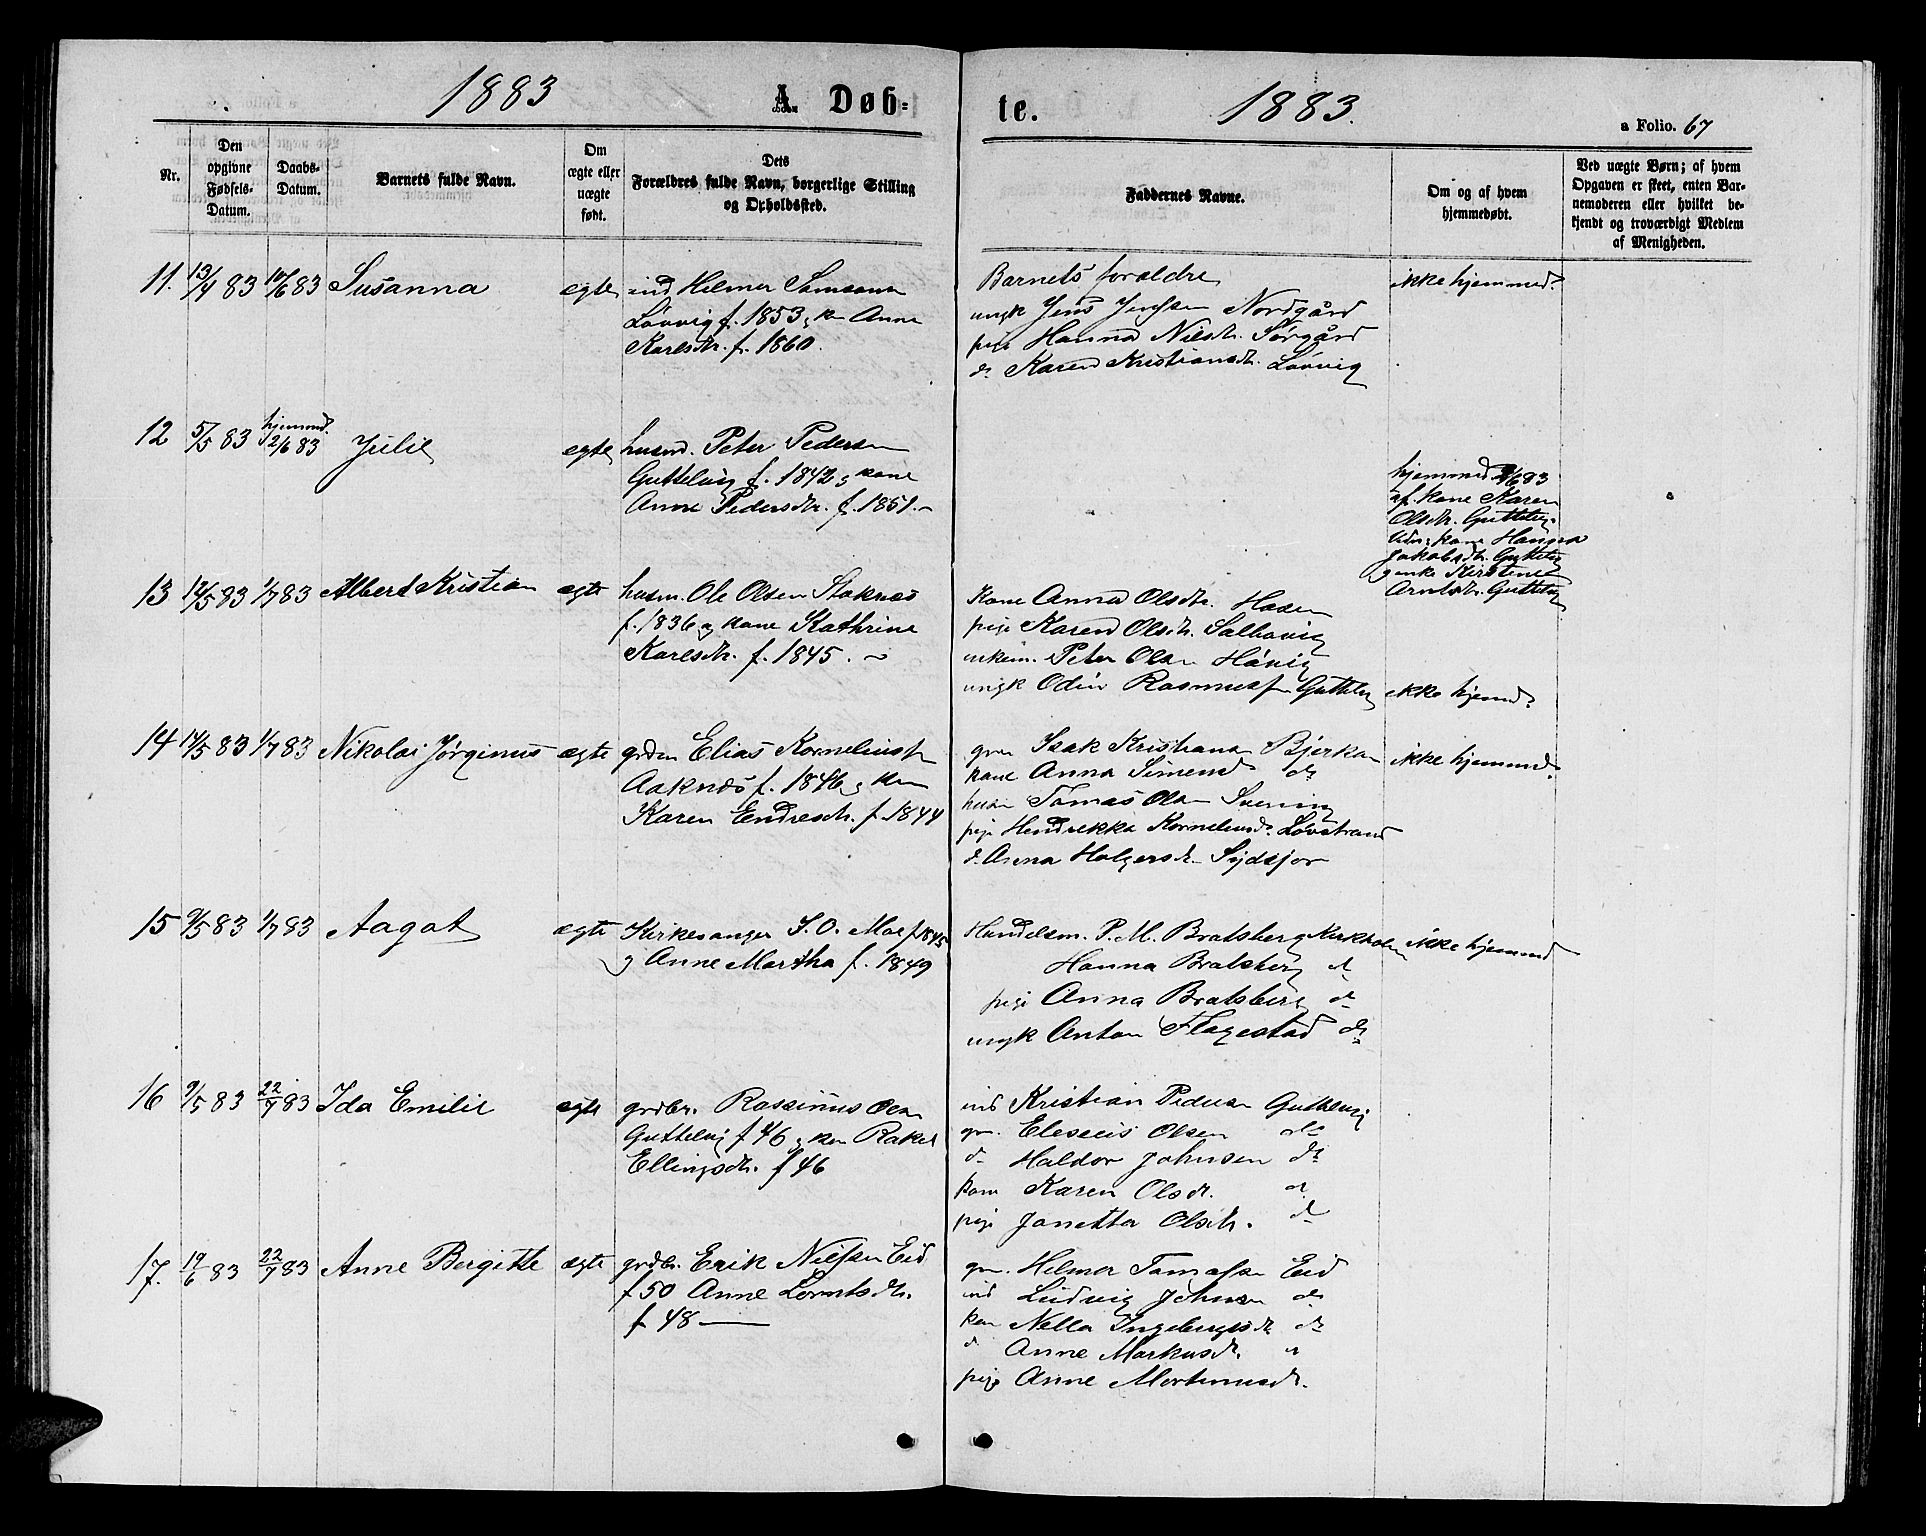 1883
A. Døb-
te.
1883.
a Folio. 67
Nr.
Den opgivne Fødsels-Datum.
Daabs-Datum.
Barnets fulde Navn.
Om ægte eller uægte født.
Dets Forældres fulde Navn, borgerlige Stilling og Opholdssted.
Faddernes Navne.
Om og af hvem hjemmedøbt.
Ved uægte Børn; af hvem Opgaven er skeet, enten Barnemoderen eller hvilket bekjendt og troværdigt Medlem af Menigheden.
11. 13/4 83 10/6 83 Susanna egte ind Helmer Samsonsen
Lövvig f. 1853 g kon Anne
Karlsdtr. f. 1860.
Barnets forældre ikke hjemmed.
ungk Jens Jensen Nordgård
pige Hanna Nilsdtr. Sørgård
do Karen Kristiansdtr. Lövvig
12 5/5 83 hjemmd. 2/6 83 Julie egte husmd. Peter Pedersen
Guttelvig f. 1842 g kone
Anne Pedersdtr. f. 1851.
hjemmed 2/6 83
af kone Karen
Olsdtr. Guttelvig
kone Hanna
Jakobsdtr. Guttelvig
enke Kirstene
Arntsdtr. Guttelvig
13 12/5 83 1/7 83 Albert Kristian egte husm. Ole Olsen Stoknæs
f. 1836 g kone Kathrine
Karlsdtr. f. 1845.
kone Anna Olsdtr.
pige Karen Olsdtr. Salhøvig
enkem. Peter Olsen Håvig
ungk Odin Rasmussen Guttelvig ikke hjemd.
14 14/5 83 1/7 83 Nikolai Jørginus ægte grdm Elias Korneliussen
Aaknæs f. 1846 g kon
Karen Endresdtr. f. 1844
grm Isak Kristiansen Bjerkan ikke hjemmd.
kone Anna Simensd do
husm Tomas Olsen
pige Hendrekka Korneliusdr. Løvstrand
d. Anna Holgersdtr. Sydsjor
15 9/5 83 1/7 83 Aagot ægte Kirkesanger J. O. Moe f. 1845
g Anne Martha f. 1849
Handelsm. P. M. Bratsberg Kirkholm ikke hjemmed
Hanna Bratsberg d
pige Anna Bratsberg d
ungk Anton Flagestad do
16 9/5 83 22/7 83 Ida Emilie egte grdbr. Rassinus Olsen
Guttelvig f 46 g kon Rakel
Ellingsdtr. f 46
ind Kristian Pedersen Guttelvig
gm. Eleseus Olsen do
d Haldor Johnsen do
kone Karen Olsdtr. d
pige Janetta Olsdtr. d
17. 19/6 83 22/7 83 Anne Bergitte ægte grdbr. Erik Nielsen Eid
f 50 Anne Lorntsdtr.
f 48
gm. Helmer Tomassen Eid
ind Ludvig Johnsen do
kon Nella Ingebrigtsdtr do
d Anne Markusdtr. d
pige Anne Mortinusdtr.